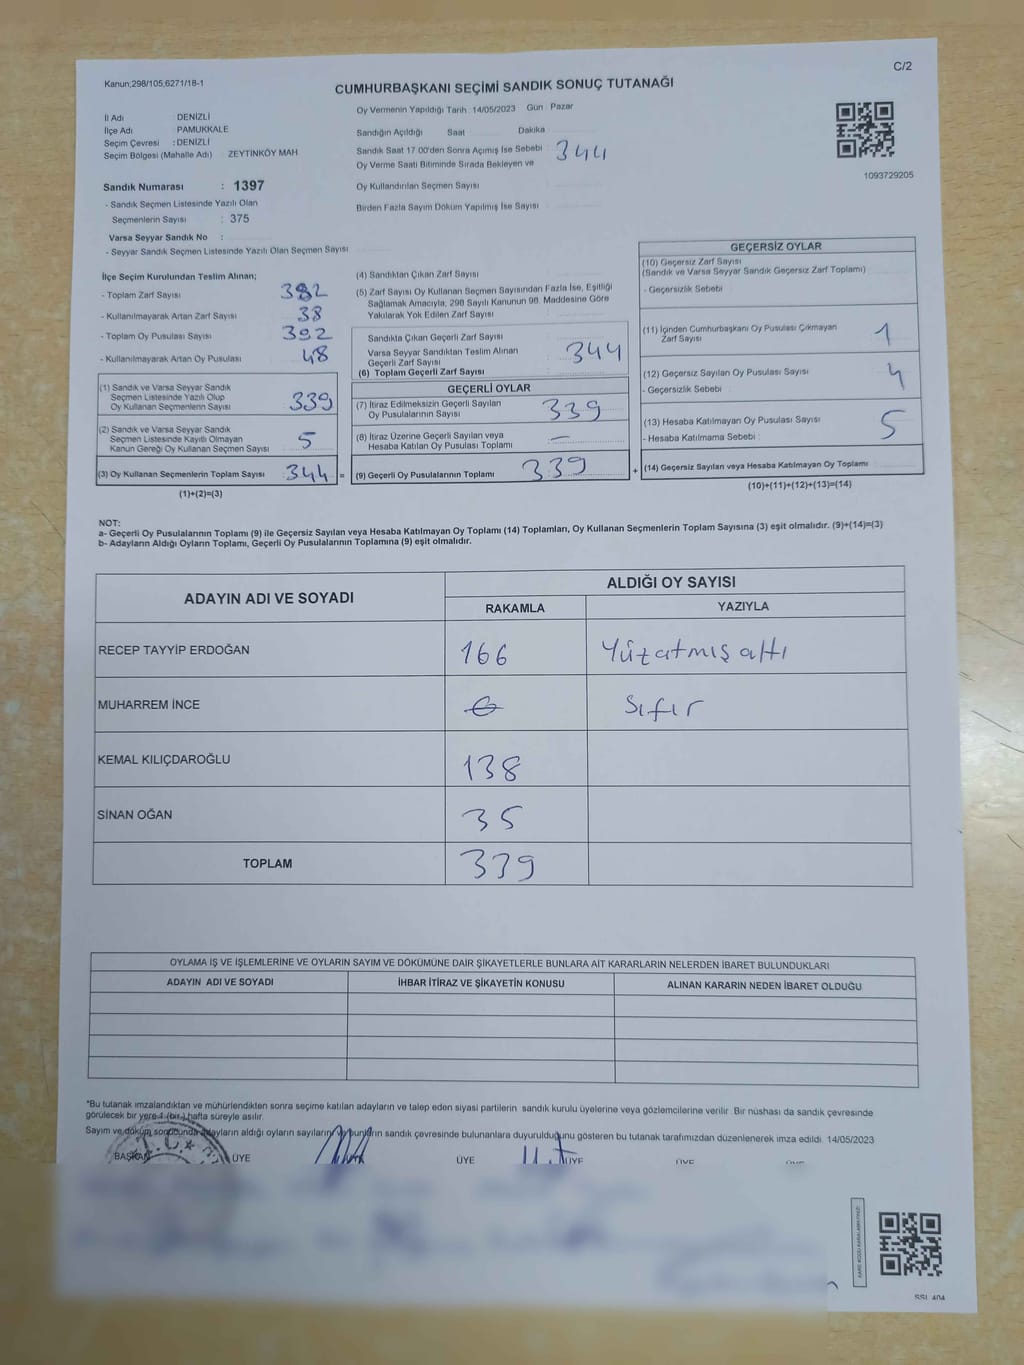 Kanun;298/105,6271/18-1
C/2
CUMHURBAŞKANI SEÇİMİ SANDIK SONUÇ TUTANAĞI
İl Adı : DENİZLİ
İlçe Adı : PAMUKKALE
Seçim Çevresi : DENİZLİ
Seçim Bölgesi (Mahalle Adı) : ZEYTİNKÖY MAH
Sandık Numarası : 1397
- Sandık Seçmen Listesinde Yazılı Olan
Seçmenlerin Sayısı : 375
Varsa Seyyar Sandık No :
- Seyyar Sandık Seçmen Listesinde Yazılı Olan Seçmen Sayısı
Oy Vermenin Yapıldığı Tarih : 14/05/2023 Gün : Pazar
Sandığın Açıldığı Saat Dakika
Sandık Saat 17.00'den Sonra Açımış İse Sebebi : 344
Oy Verme Saati Bitiminde Sırada Bekleyen ve
Oy Kullandırılan Seçmen Sayısı
Birden Fazla Sayım Döküm Yapılmış İse Sayısı
1093729205
İlçe Seçim Kurulundan Teslim Alınan;
- Toplam Zarf Sayısı 382
- Kullanılmayarak Artan Zarf Sayısı 38
- Toplam Oy Pusulası Sayısı 392
- Kullanılmayarak Artan Oy Pusulası 48
(1) Sandık ve Varsa Seyyar Sandık
Seçmen Listesinde Yazılı Olup
Oy Kullanan Seçmenlerin Sayısı 339
(2) Sandık ve Varsa Seyyar Sandık
Seçmen Listesinde Kayıtlı Olmayan
Kanun Gereği Oy Kullanan Seçmen Sayısı 5
(3) Oy Kullanan Seçmenlerin Toplam Sayısı 344 =
(1)+(2)=(3)
(4) Sandıktan Çıkan Zarf Sayısı
(5) Zarf Sayısı Oy Kullanan Seçmen Sayısından Fazla İse, Eşitliği
Sağlamak Amacıyla, 298 Sayılı Kanunun 98. Maddesine Göre
Yakılarak Yok Edilen Zarf Sayısı
Sandıkta Çıkan Geçerli Zarf Sayısı
Varsa Seyyar Sandıktan Teslim Alınan
Geçerli Zarf Sayısı 344
(6) Toplam Geçerli Zarf Sayısı
GEÇERLİ OYLAR
(7) İtiraz Edilmeksizin Geçerli Sayılan
Oy Pusulalarının Sayısı 339
(8) İtiraz Üzerine Geçerli Sayılan veya
Hesaba Katılan Oy Pusulası Toplamı —
(9) Geçerli Oy Pusulalarının Toplamı 339 +
GEÇERSİZ OYLAR
(10) Geçersiz Zarf Sayısı
(Sandık ve Varsa Seyyar Sandık Geçersiz Zarf Toplamı)
- Geçersizlik Sebebi
(11) İçinden Cumhurbaşkanı Oy Pusulası Çıkmayan
Zarf Sayısı 1
(12) Geçersiz Sayılan Oy Pusulası Sayısı 4
- Geçersizlik Sebebi
(13) Hesaba Katılmayan Oy Pusulası Sayısı 5
- Hesaba Katılmama Sebebi :
(14) Geçersiz Sayılan veya Hesaba Katılmayan Oy Toplamı
(10)+(11)+(12)+(13)=(14)
NOT:
a- Geçerli Oy Pusulalarının Toplamı (9) ile Geçersiz Sayılan veya Hesaba Katılmayan Oy Toplamı (14) Toplamları, Oy Kullanan Seçmenlerin Toplam Sayısına (3) eşit olmalıdır. (9)+(14)=(3)
b- Adayların Aldığı Oyların Toplamı, Geçerli Oy Pusulalarının Toplamına (9) eşit olmalıdır.
ADAYIN ADI VE SOYADI
ALDIĞI OY SAYISI
RAKAMLA YAZIYLA
RECEP TAYYİP ERDOĞAN 166 Yüzatmış altı
MUHARREM İNCE 0 Sıfır
KEMAL KILIÇDAROĞLU 138
SİNAN OĞAN 35
TOPLAM 339
OYLAMA İŞ VE İŞLEMLERİNE VE OYLARIN SAYIM VE DÖKÜMÜNE DAİR ŞİKAYETLERLE BUNLARA AİT KARARLARIN NELERDEN İBARET BULUNDUKLARI
ADAYIN ADI VE SOYADI İHBAR İTİRAZ VE ŞİKAYETİN KONUSU ALINAN KARARIN NEDEN İBARET OLDUĞU
*Bu tutanak imzalandıktan ve mühürlendikten sonra seçime katılan adayların ve talep eden siyasi partilerin sandık kurulu üyelerine veya gözlemcilerine verilir. Bir nüshası da sandık çevresinde
görülecek bir yere 1 (bir) hafta süreyle asılır.
Sayım ve döküm sonucunda adayların aldığı oyların sayıların ve bunların sandık çevresinde bulunanlara duyurulduğunu gösteren bu tutanak tarafımızdan düzenlenerek imza edildi. 14/05/2023
BAŞKAN ÜYE ÜYE ÜYE ÜYE
T.C.